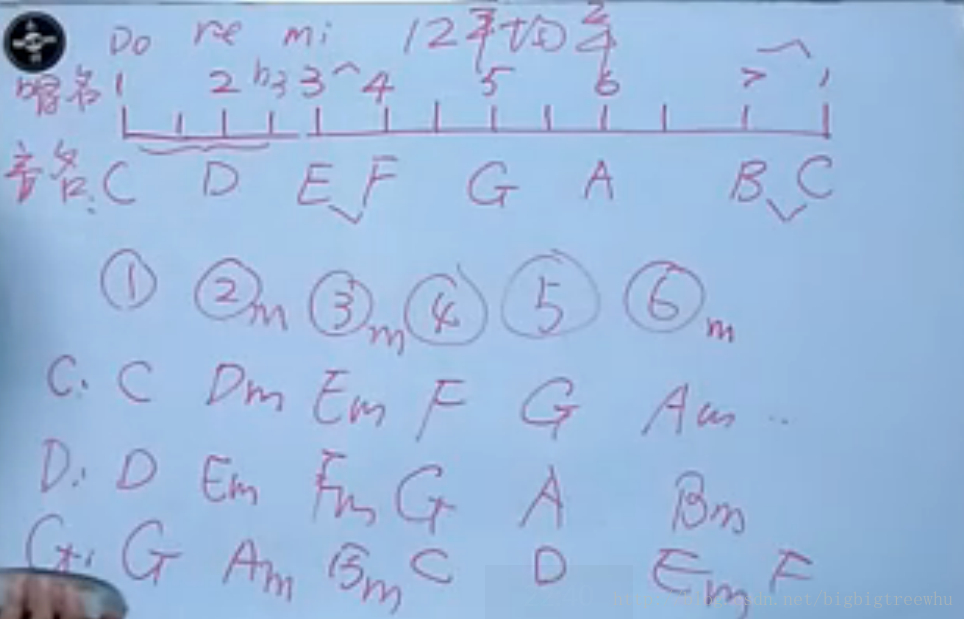 Do re mi 12平均律
唱名 1 2 b3 3 4 5 6 7 1
音名: C D E F G A B C
① ②m ③m ④ ⑤ ⑥m
C: C Dm Em F G Am ..
D: D Em Fm G A Bm
G: G Am Bm C D Em F